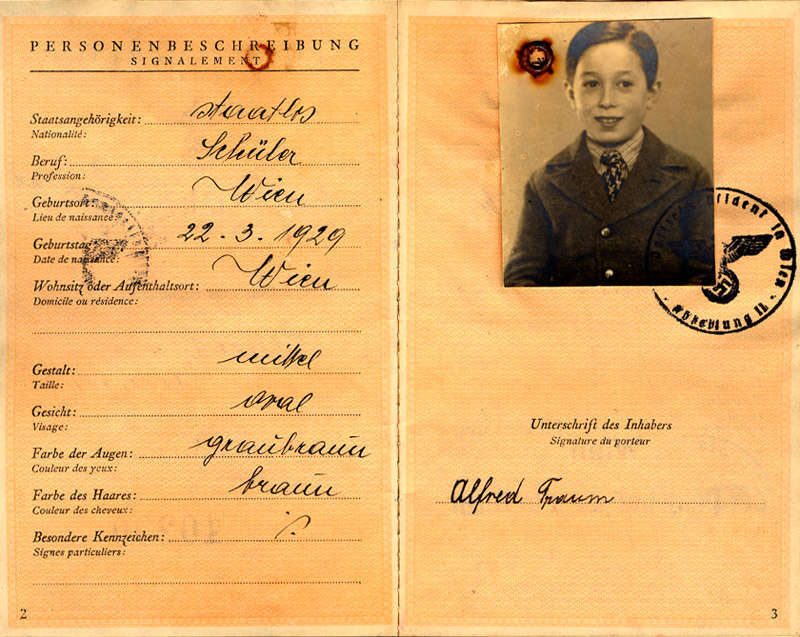 PERSONENBESCHREIBUNG
SIGNALEMENT
Staatsangehörigkeit: staatlos
Nationalité:
Beruf: Schüler
Profession:
Geburtsort: Wien
Lieu de naissance:
Geburtstag: 22-3.1929
Date de naissance:
Wohnsitz oder Aufenthaltsort: Wien
Domicile ou résidence:
Gestalt: mittel
Taille:
Gesicht: oval
Visage:
Farbe der Augen: graubraun
Couleur des yeux:
Farbe des Haares: braun
Couleur des cheveux:
Besondere Kennzeichen: ·/.
Signes particuliers:
2
präsident in Wien
Abteilung II
Unterschrift des Inhabers
Signature du porteur
Alfred Traum
3